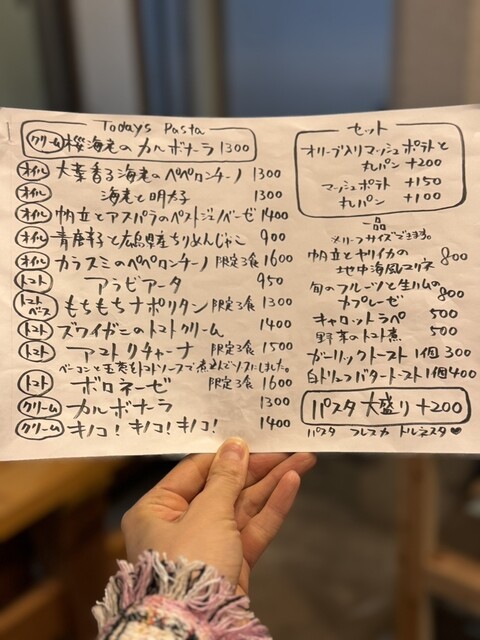 Todays Pasta
クリーム 桜海老のカルボナーラ 1300
オイル 大葉香る海老のペペロンチーノ 1300
オイル 海老と明太子 1300
オイル 帆立とアスパラのペストジェノベーゼ 1400
オイル 青唐辛子と広島県産ちりめんじゃこ 900
オイル カラスミのペペロンチーノ 限定3食 1600
トマト アラビアータ 950
トマトベース もちもちナポリタン 限定3食 1300
トマト ズワイガニのトマトクリーム 1400
トマト アマトリチャーナ 限定3食 1500
ベーコンと玉葱をトマトソースで煮込んでソースにしました。
トマト ボロネーゼ 限定3食 1600
クリーム カルボナーラ 1300
クリーム キノコ!キノコ!キノコ! 1400
セット
オリーブ入りマッシュポテトと
丸パン +200
マッシュポテト +150
丸パン +100
一品
ハーフサイズできます。
帆立とヤリイカの
地中海風マリネ 800
旬のフルーツと生ハムの
カプレーゼ 800
キャロットラペ 500
野菜のトマト煮 500
ガーリックトースト 1個 300
白トリュフバタートースト 1個 400
パスタ大盛り +200
パスタ フレスカ トルネスタ♥